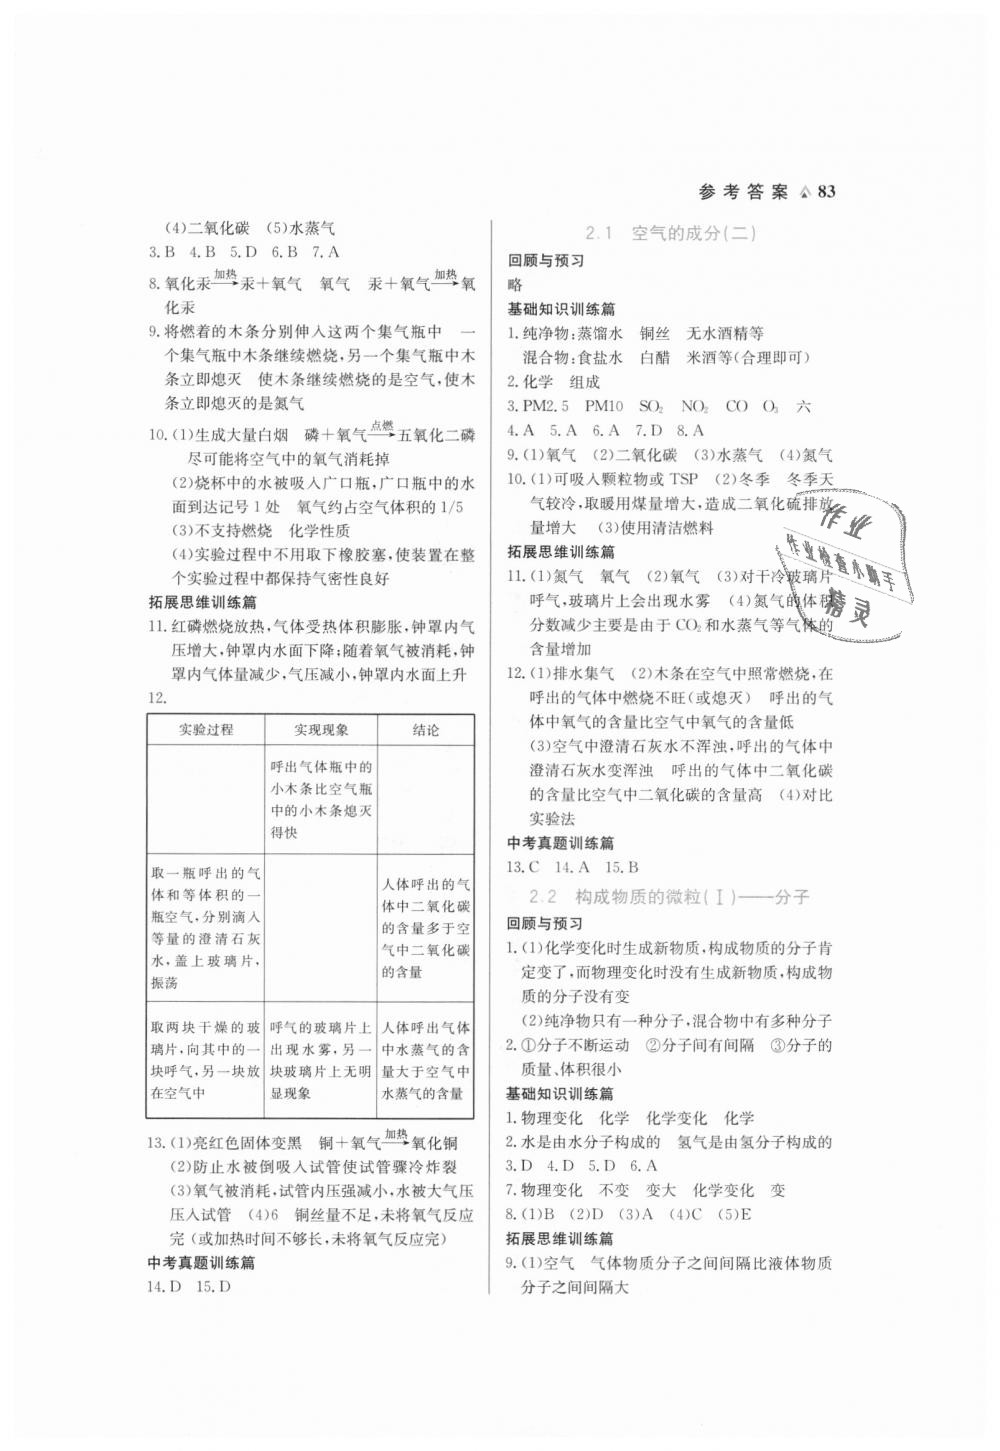 参考答案 83
(4)二氧化碳 (5)水蒸气
3.B 4.B 5.D 6.B 7.A
8.氧化汞加热→汞＋氧气 氧气 汞＋氧气加热→氧
化汞
9.将燃着的木条分别伸入这两个集气瓶中 一
个集气瓶中木条继续燃烧,另一个集气瓶中木
条立即熄灭 使木条继续燃烧的是空气,使木
条立即熄灭的是氮气
10.(1)生成大量白烟 磷＋氧气点燃→五氧化二磷
尽可能将空气中的氧气消耗掉
(2)烧杯中的水被吸入广口瓶,广口瓶中的水
面到达记号1处 氧气约占空气体积的1/5
(3)不支持燃烧 化学性质
(4)实验过程中不用取下橡胶塞,使装置在整
个实验过程中都保持气密性良好
拓展思维训练篇
11.红磷燃烧放热,气体受热体积膨胀,钟罩内气
压增大,钟罩内水面下降;随着氧气被消耗,钟
罩内气体量减少,气压减小,钟罩内水面上升
12.
实验过程 实现现象 结论
呼出气体瓶中的
小木条比空气瓶
中的小木条熄灭
得快
取一瓶呼出的气
体和等体积的一
瓶空气,分别滴入
等量的澄清石灰
水,盖上玻璃片,
振荡
人体呼出的气
体中二氧化碳
的含量多于空
气中二氧化碳
的含量
取两块干燥的玻
璃片,向其中的一
块呼气,另一块放
在空气中
呼气的玻璃片上
出现水雾,另一
块玻璃片上无明
显现象
人体呼出气体
中水蒸气的含
量大于空气中
水蒸气的含量
13.(1)亮红色固体变黑 铜＋氧气加热→氧化铜
(2)防止水被倒吸入试管使试管骤冷炸裂
(3)氧气被消耗,试管内压强减小,水被大气压
压入试管 (4)6 铜丝量不足,未将氧气反应
完(或加热时间不够长,未将氧气反应完)
中考真题训练篇
14.D 15.D
2.1 空气的成分(二)
回顾与预习
略
基础知识训练篇
1.纯净物:蒸馏水 铜丝 无水酒精等
混合物:食盐水 白醋 米酒等(合理即可)
2.化学 组成
3.PM2.5 PM10 SO₂ NO₂ CO O₃ 六
4.A 5.A 6.A 7.D 8.A
9.(1)氧气 (2)二氧化碳 (3)水蒸气 (4)氮气
10.(1)可吸入颗粒物或TSP (2)冬季 冬季天
气较冷,取暖用煤量增大,造成二氧化硫排放
量增大 (3)使用清洁燃料
拓展思维训练篇
11.(1)氮气 氧气 (2)氧气 (3)对干冷玻璃片
呼气,玻璃片上会出现水雾 (4)氮气的体积
分数减少主要是由于CO₂和水蒸气等气体的
含量增加
12.(1)排水集气 (2)木条在空气中照常燃烧,在
呼出的气体中燃烧不旺(或熄灭) 呼出的气
体中氧气的含量比空气中氧气的含量低
(3)空气中澄清石灰水不浑浊,呼出的气体中
澄清石灰水变浑浊 呼出的气体中二氧化碳
的含量比空气中二氧化碳的含量高 (4)对比
实验法
中考真题训练篇
13.C 14.A 15.B
2.2 构成物质的微粒(Ⅰ)——分子
回顾与预习
1.(1)化学变化时生成新物质,构成物质的分子肯
定变了,而物理变化时没有生成新物质,构成物
质的分子没有变
(2)纯净物只有一种分子,混合物中有多种分子
2.①分子不断运动 ②分子间有间隔 ③分子的
质量、体积很小
基础知识训练篇
1.物理变化 化学 化学变化 化学
2.水是由水分子构成的 氢气是由氢分子构成的
3.D 4.D 5.D 6.A
7.物理变化 不变 变大 化学变化 变
8.(1)B (2)D (3)A (4)C (5)E
拓展思维训练篇
9.(1)空气 气体物质分子之间间隔比液体物质
分子之间间隔大
作业
作业检查小助手
精灵